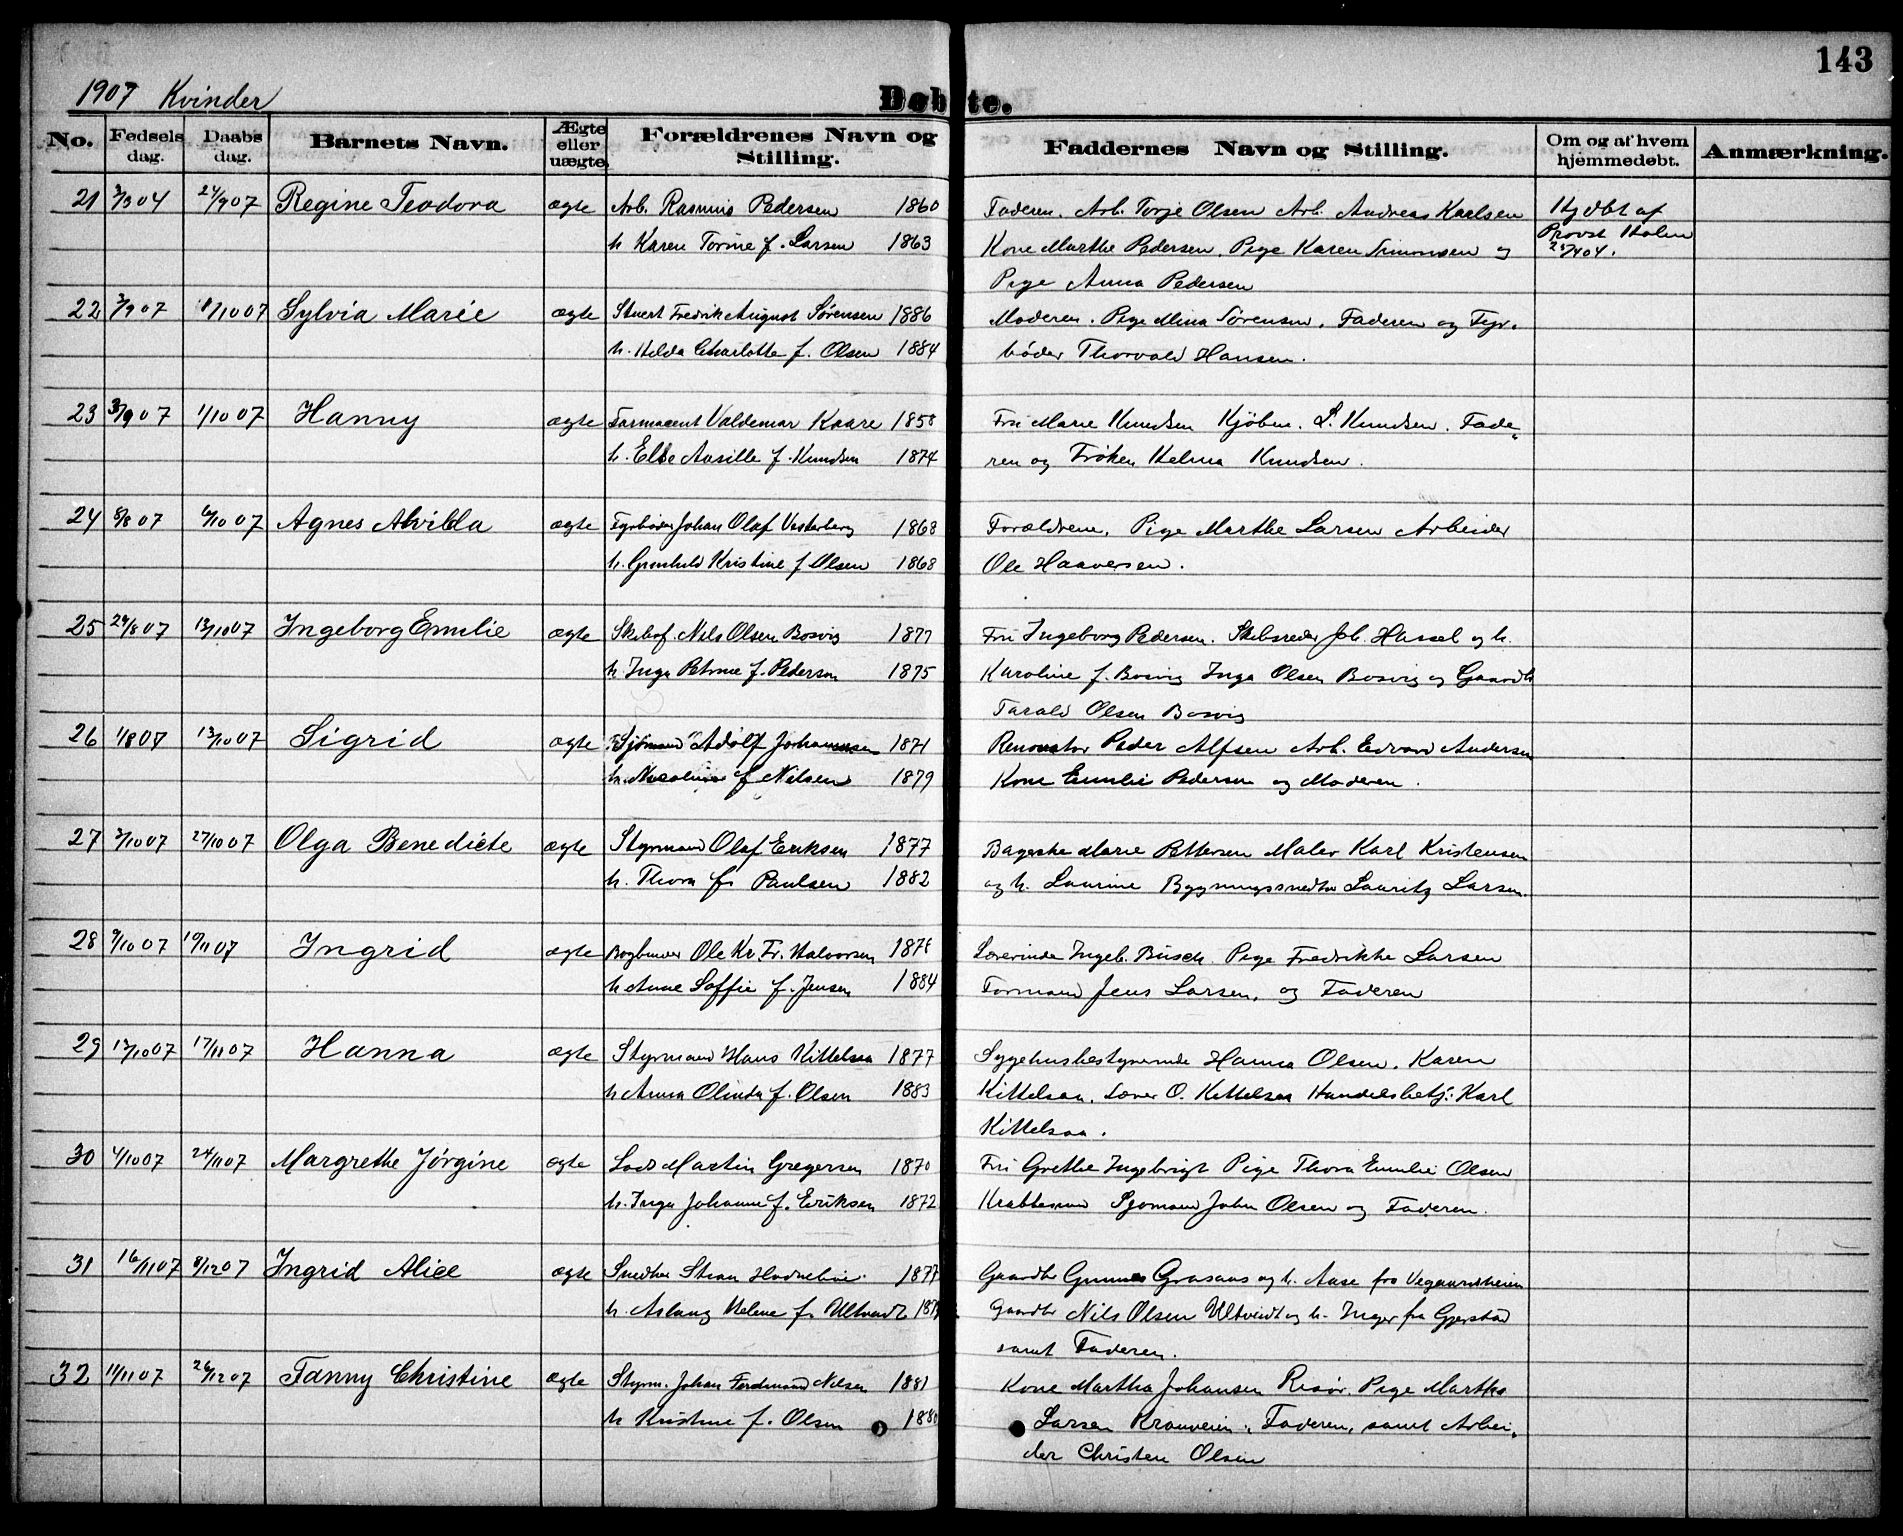 143
1907 Kvinder
Døbte.
No. Fødsels dag. Daabs dag. Barnets Navn. Ægte eller uægte. Forældrenes Navn og Stilling. Faddernes Navn og Stilling. Om og af hvem hjemmedøbt. Anmærkning.
21 2/3 04 24/9 07 Regine Teodora ægte Arb. Rasmus Pedersen 1860 Faderen. Arb. Torje Olsen Arb. Andreas Karlsen Hj dbt af
h Karen Torine f. Larsen 1863 Kone Marthe Pedersen. Pige Karen Simonsen og Provst Holm
Pige Anna Pedersen 25/4 04.
22 2/9 07 /10 07 Sylvia Marie ægte Stuert Fredrik August Sørensen 1886 Moderen. Pige Mina Sørensen. Faderen og Fyr-
h. Hilda Charlotte f. Olsen 1884 bøder Thorvald Hansen.
23 /9 07 1/10 07 Hanny ægte Farmaceut Valdemar Kaare 1858 Fru Marie Knudsen Kjøbm. L. Knudsen. Fade-
h. Else Aasille f. Knudsen 1874 ren og Frøken Helma Knudsen.
24 8/8 07 6/10 07 Agnes Alvilda ægte Fyrbøder Johan Olaf Vesterberg 1868 Forældrene. Pige Marthe Larsen Arbeider
h. Gunhild Kristine f Olsen 1868 Ole Haaversen.
25 29/8 07 13/10 07 Ingeborg Emilie ægte Skibsf. Nils Olsen Bosvig 1877 Fru Ingeborg Pedersen. Skibsreder Joh. Hassel og h.
h Inga Petrine f. Pedersen 1875 Karoline f. Bosvig Inga Olsen Bosvig og Gaardb
Tarald Olsen Bosvig
26 1/8 07 13/10 07 Sigrid ægte Sjømand Adolf Johannsen 1871 Renovatør Peder Alfsen Arb. Edvard Andersen
h. Nicoline f Nilsen 1879 Kone Emilie Pedersen og Moderen.
27 2/10 07 27/10 07 Olga Benedicte ægte Styrmand Olaf Eriksen 1877 Bagerske Marie Pettersen Maler Karl Kristensen
h. Thora f. Paulsen 1882 og h. Laurine Bygningssnedker Lauritz Larsen.
28 9/10 07 10/11 07 Ingrid ægte Bogbinder Ole Kr. Fr. Halvorsen 1878 Lærerinde Ingeb. Busch Pige Fredrikke Larsen
h Anne Soffie f. Jensen 1884 Formand Jens Larsen, og Faderen
29 12/10 07 17/11 07 Hanna ægte Styrmand Hans Kittelsaa 1877 Sygehusbestyrerinde Hanna Olsen. Karen
h Anna Olinda f. Olsen 1883 Kittelsaa. Lærer O. Kittelsaa Handelsbetj: Karl
Kittelsaa.
30 4/10 07 24/11 07 Margrethe Jørgine ægte Lods Martin Gregersen 1870 Fru Grethe Ingebrigt Pige Thora Emilie Olsen
h. Inga Johanne f. Eriksen 1872 Sjømand John Olsen og Faderen.
31 16/11 07 8/12 07 Ingrid Alice ægte Snedker Stian 1877 Gaardb Gunnes Grasaas og h. Aase fra Vegaardsheien
h. Aslaug Helene f. Ultveidt Gaardbr Nils Olsen Ultveidt og h. Inger fra Gjerstad
samt Faderen.
32 11/11 07 26/12 07 Fanny Christine ægte Styrm. Johan Ferdinand Nilsen 1881 Kone Martha Johansen Risør. Pige Martha
h Kristine f. Olsen 1880 Larsen Kranveien. Faderen, samt Arbei-
der Christen Olsen